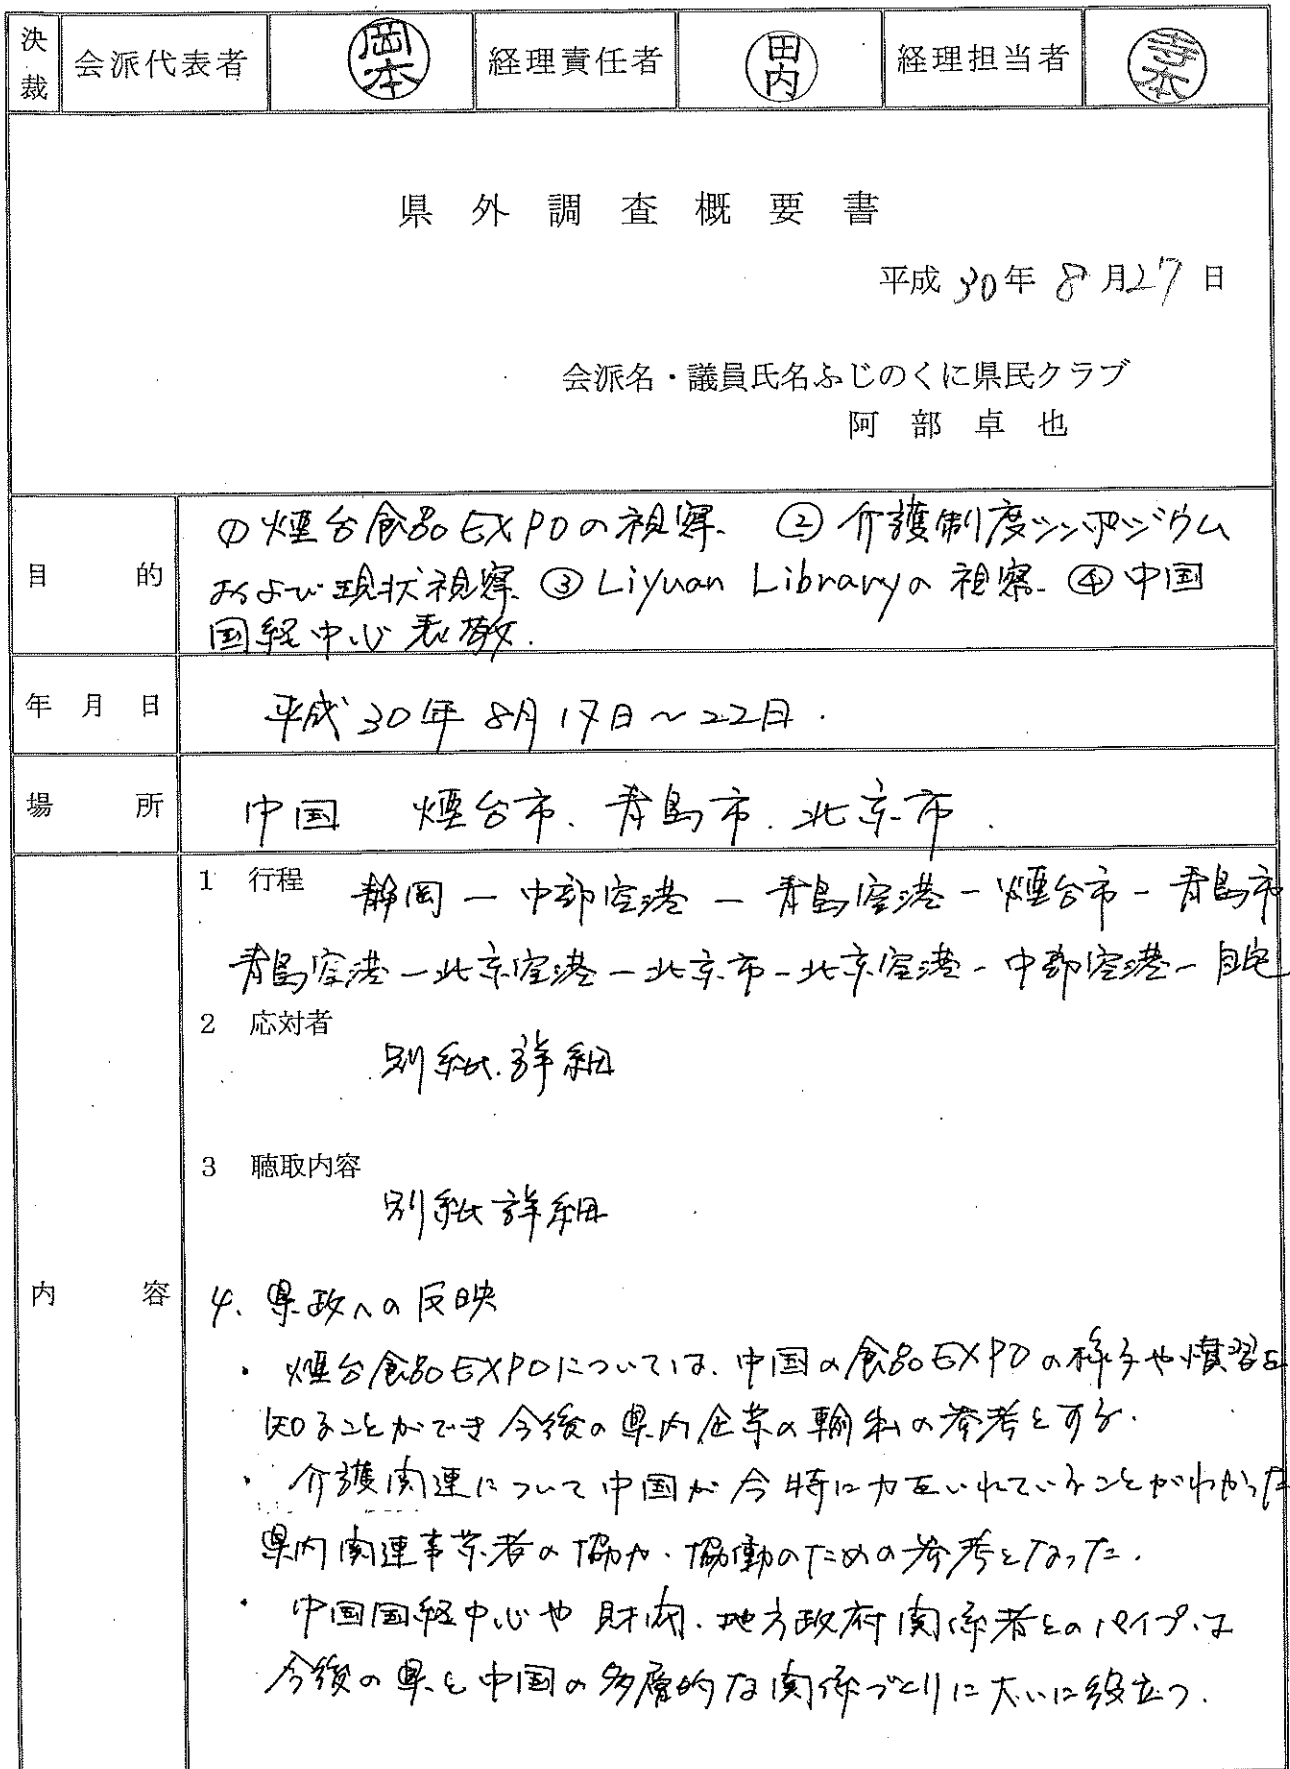 決裁 会派代表者 岡本 経理責任者 田内 経理担当者
県外調査概要書
平成30年8月27日
会派名・議員氏名ふじのくに県民クラブ
阿部卓也
目的
①煙台食品EXPOの視察. ②介護制度シンポジウム
および現状視察. ③Liyuan Libraryの視察. ④中国
国経中心表敬.
年月日
平成30年8月17日～22日.
場所
中国 煙台市. 青島市. 北京市.
内容
1 行程 静岡－中部空港－青島空港－煙台市－青島市
青島空港－北京空港－北京市－北京空港－中部空港－自宅
2 応対者
別紙.詳細
3 聴取内容
別紙詳細
4. 県政への反映
・煙台食品EXPOについては、中国の食品EXPOの様子や慣習を
知ることができ今後の県内企業の輸出の参考とする.
・介護関連について中国が今特に力をいれていることがわかった
県内関連事業者の協力・協働のための参考となった.
・中国国経中心や財閥、地方政府関係者とのパイプは
今後の県と中国の多層的な関係づくりに大いに役立つ.